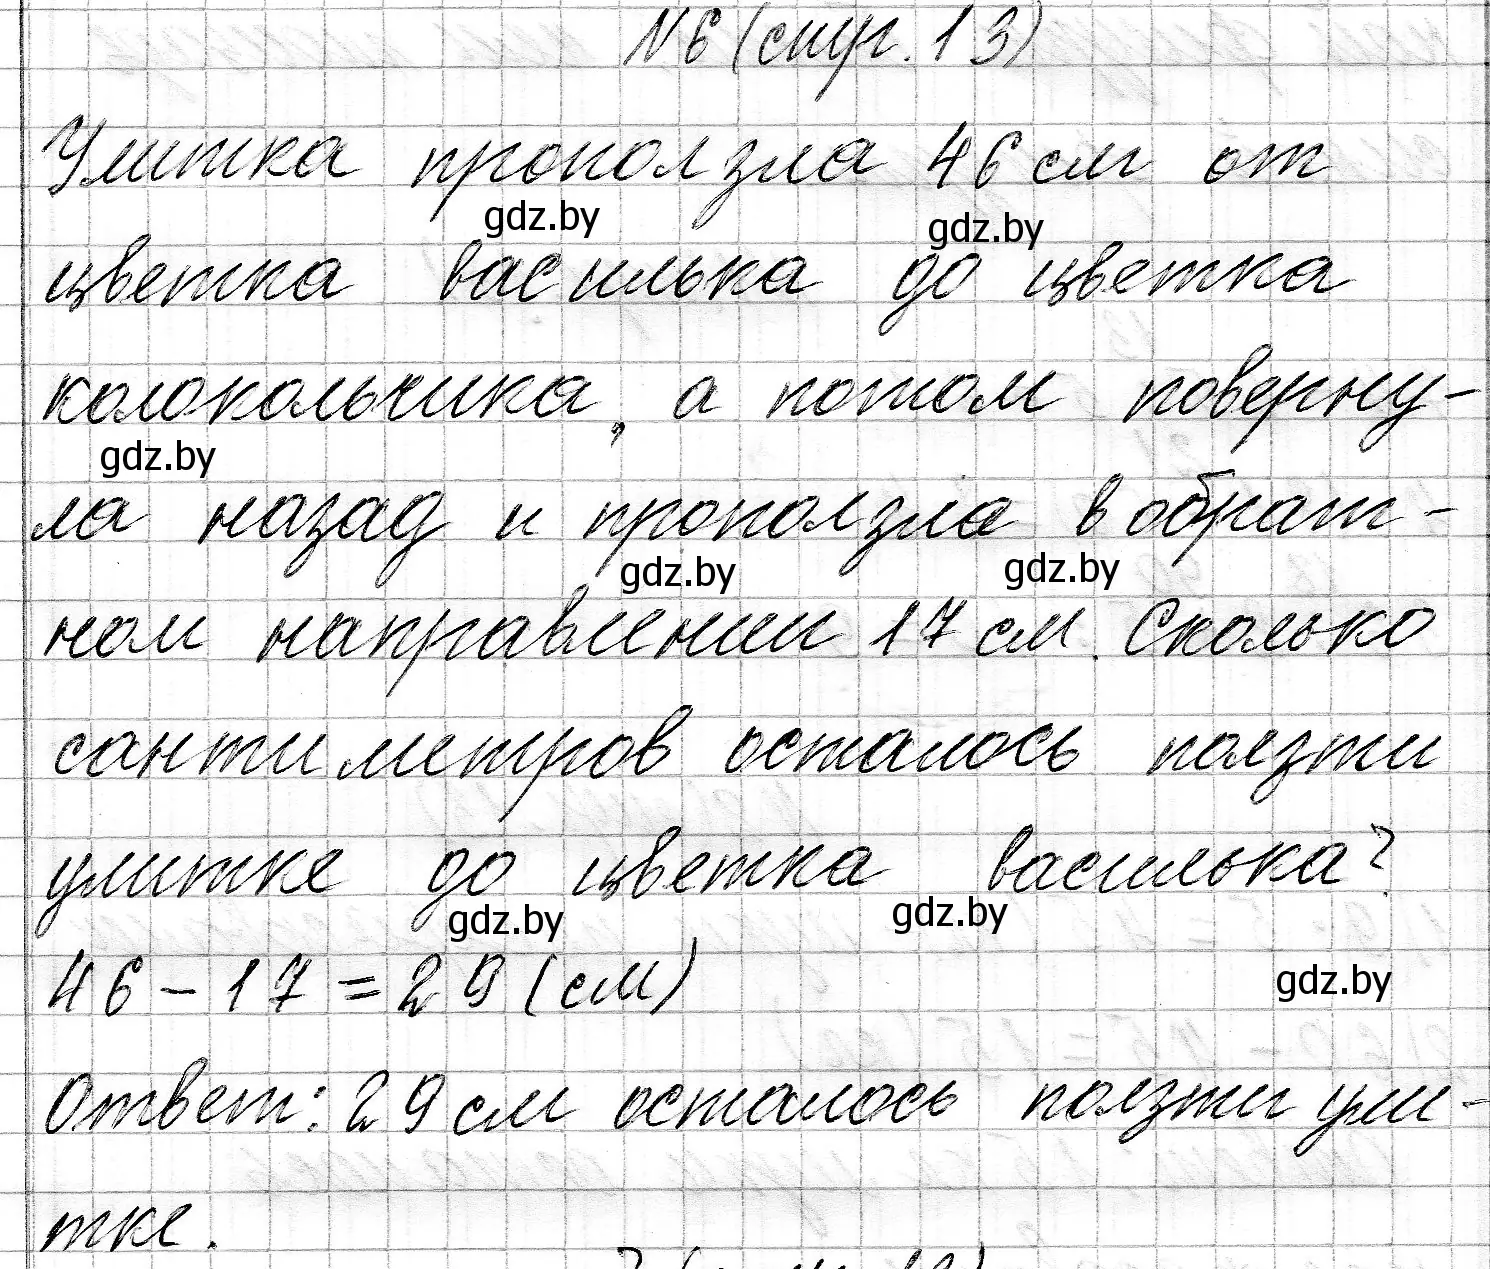 №6 (стр. 13)
Улитка проползла 46 см от
gdz.by gdz.by
цветка василька до цветка
колокольчика, а потом поверну-
gdz.by
ла назад и проползла в обрат-
gdz.by gdz.by
ном направлении 17 см. Сколько
сантиметров осталось ползти
улитке до цветка василька?
gdz.by gdz.by
46 - 17 = 29 (см)
gdz.by
Ответ: 29 см осталось ползти ули-
тке.